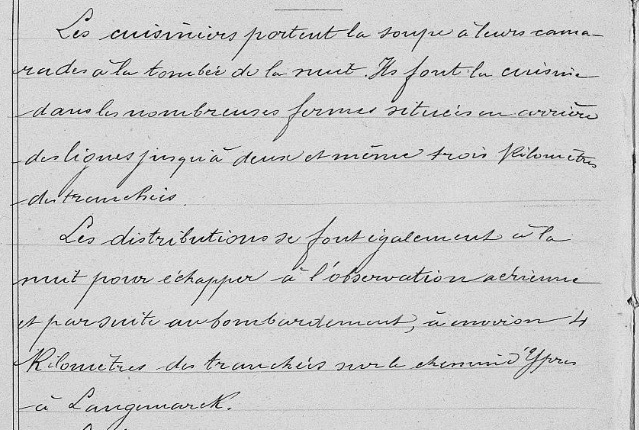 Les cuisiniers portent la soupe à leurs cama-
rades à la tombée de la nuit. Ils font la cuisine
dans les nombreuses fermes situées en arrière
des lignes jusqu'à deux et même trois Kilomètres
des tranchées.
Les distributions se font également à la
nuit pour échapper à l'observation aérienne
et par suite au bombardement, à environ 4
Kilomètres des tranchées sur le chemin d'Ypres
à Langemarck.